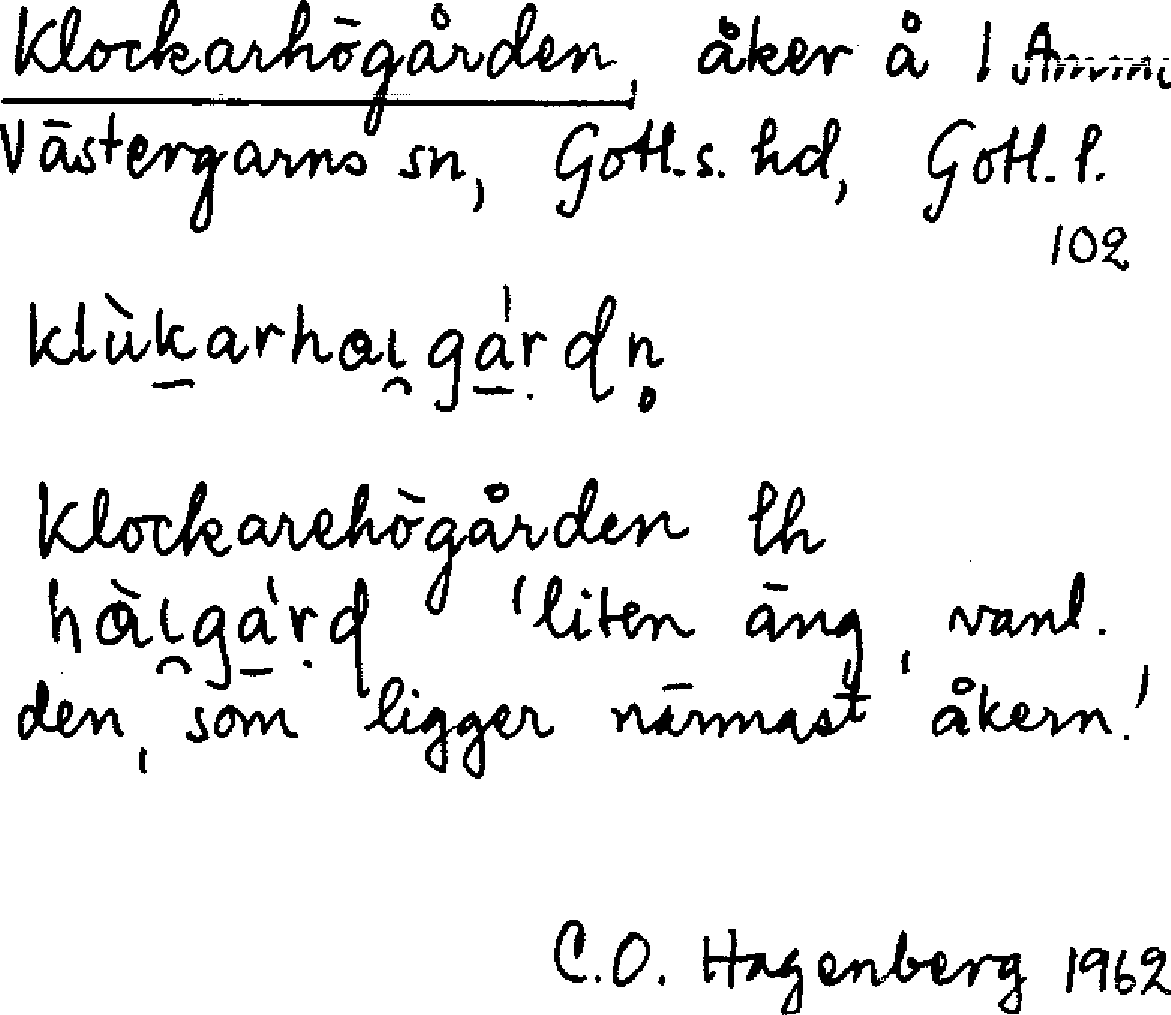 Klockarhögården, åker å 1
Västergarns sn, Gotl. s. hd, Gotl. l.
102
klùkarhɑi̯gárdn̥
Klockarehögården lh
hɑ̀i̯gárd 'liten äng, vanl.
den, som ligger närmast åkern.'
C.O. Hagenberg 1962